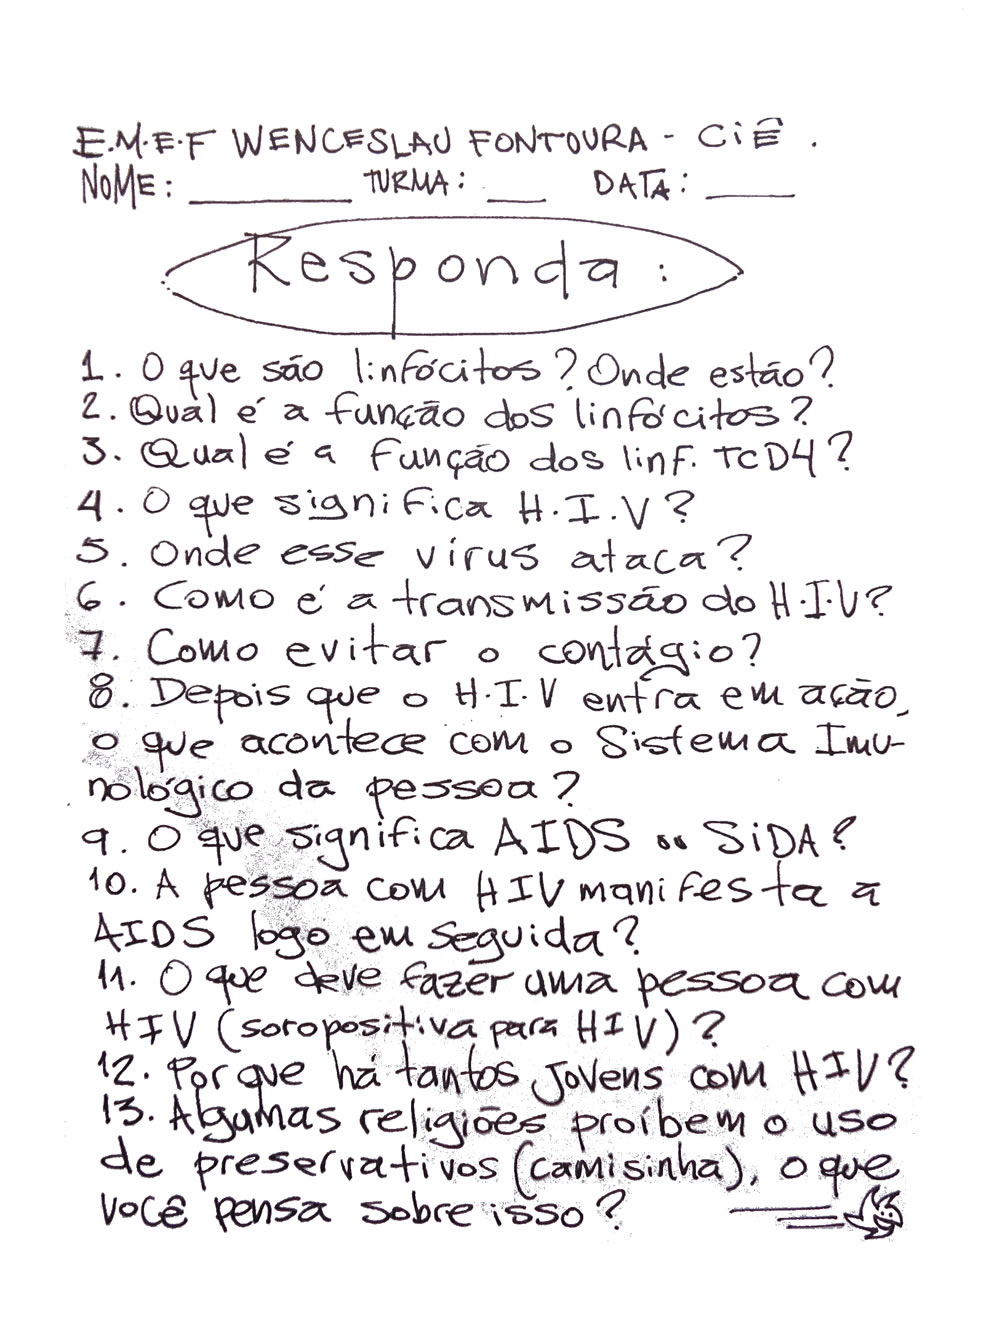 E.M.E.F WENCESLAU FONTOURA - CiÊ.
NOME: ________ TURMA: ____ DATA: _____
Responda:
1. O que são linfócitos? Onde estão?
2. Qual é a função dos linfócitos?
3. Qual é a função dos linf. TCD4?
4. O que significa H.I.V?
5. Onde esse vírus ataca?
6. Como é a transmissão do H.I.V?
7. Como evitar o contágio?
8. Depois que o H.I.V entra em ação,
o que acontece com o Sistema Imu-
nológico da pessoa?
9. O que significa AIDS ou SiDA?
10. A pessoa com HIV manifesta a
AIDS logo em seguida?
11. O que deve fazer uma pessoa com
HIV (soropositiva para HIV)?
12. Por que há tantos jovens com HIV?
13. Algumas religiões proíbem o uso
de preservativos (camisinha), o que
você pensa sobre isso?